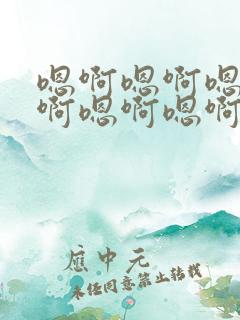 嗯啊嗯啊嗯
啊嗯啊嗯啊
应中元
未经同意禁止转载